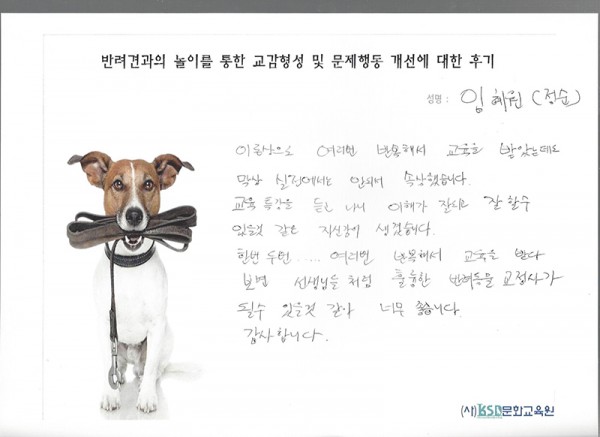 반려견과의 놀이를 통한 교감형성 및 문제행동 개선에 대한 후기
성명 : 임혜린 (정순)
이론상으로 여러번 반복해서 교육을 받았는데도
막상 실전에서는 안되서 속상했습니다.
교육 특강을 듣고 나니 이해가 잘되고 잘 할수
있을것 같은 자신감이 생겼습니다.
한번 두번..... 여러번 반복해서 교육을 받다
보면 선생님들 처럼 훌륭한 반려동물 교정사가
될수 있을것 같아 너무 좋습니다.
감사합니다.
(사)KSD문화교육원